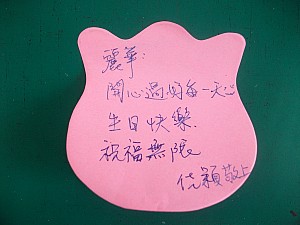 麗華:
開心過好每一天
生日快樂.
祝福無限
佳穎敬上